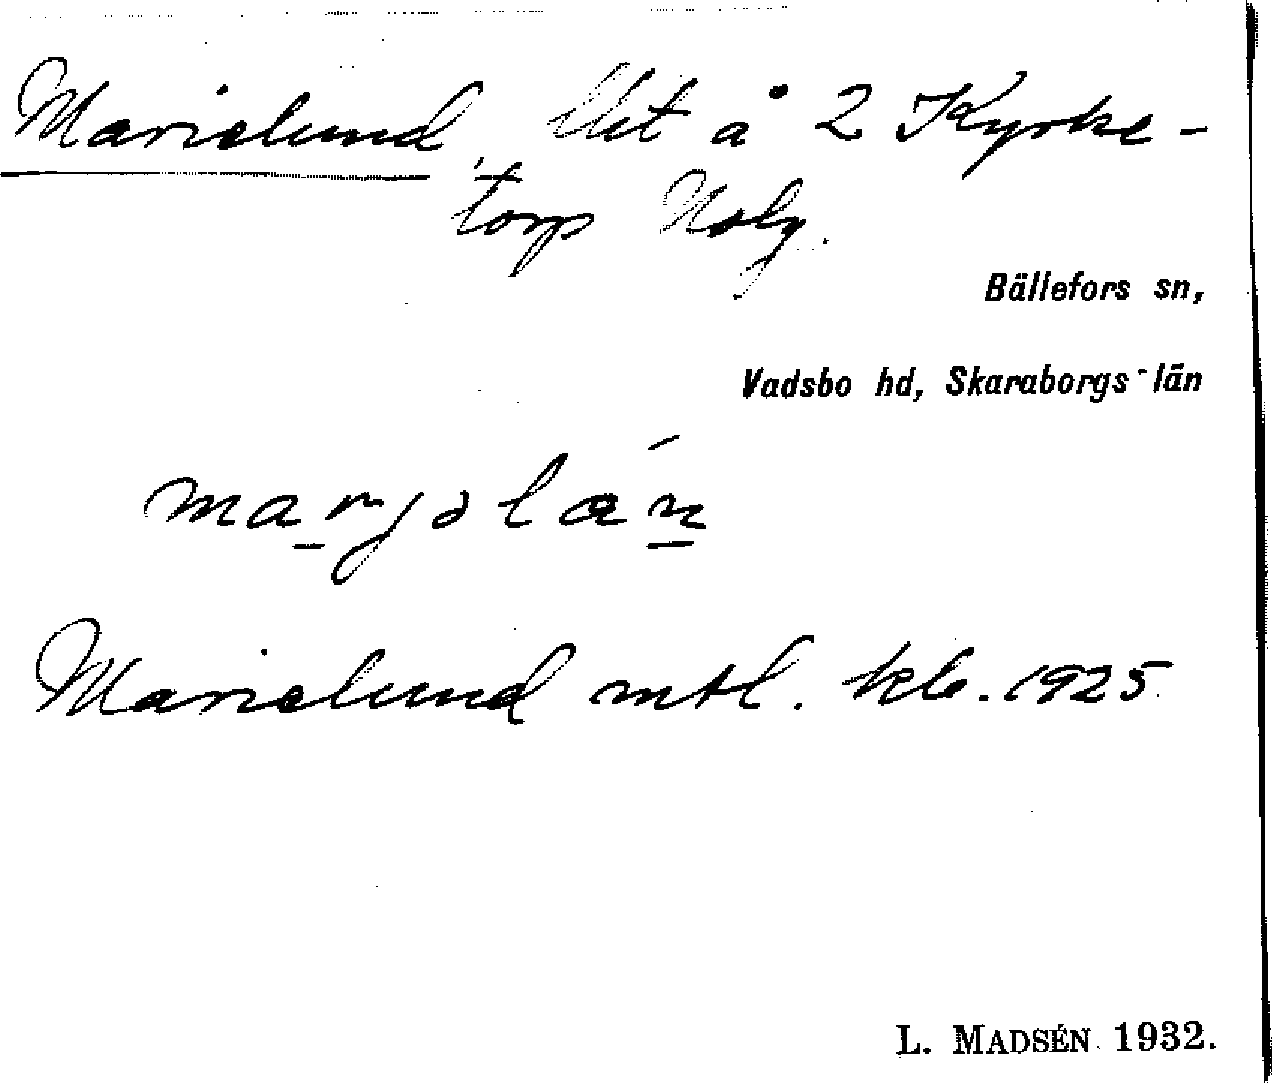 Marielund, Uet å 2 Kyrke-
torp Nolg.
Bällefors sn,
Vadsbo hd, Skaraborgs län
marjolán
Marielund mtl. kb. 1925
L. MADSÉN 1932.